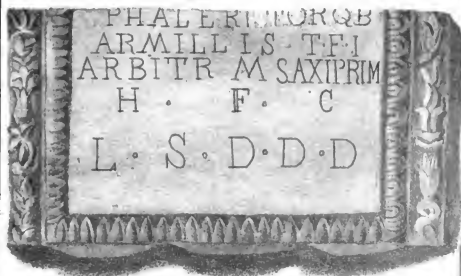 PHALERIS TORQB
ARMILLIS T·F·I
ARBITR M SAXI PRIM
H · F · C
L · S · D · D · D